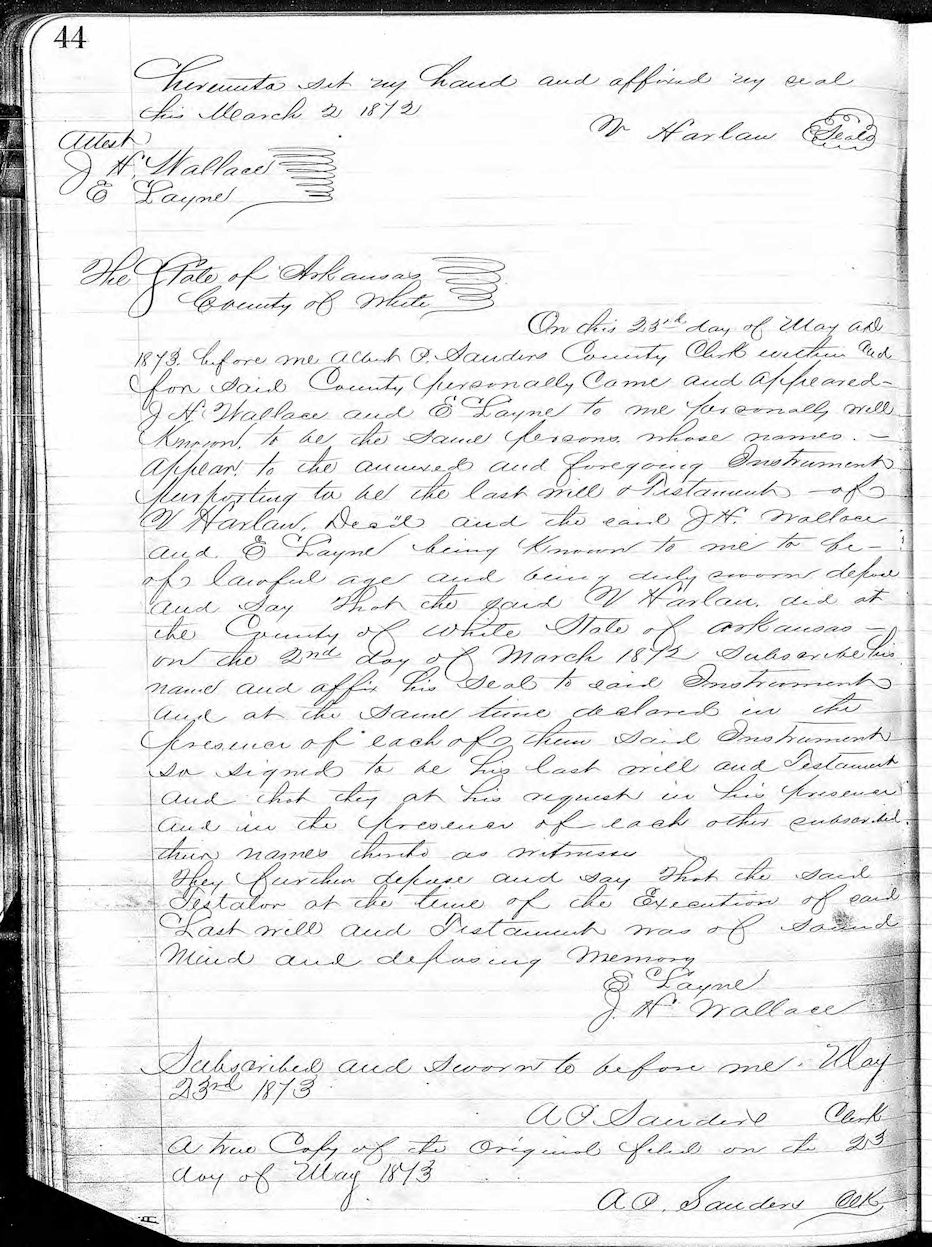 44
hereunto set my hand and affixed my seal
this March 2 1872
W Harlan Seal
Attest
J H. Wallace
E Layne
The State of Arkansas
County of White
On this 23rd day of May AD
1873. before me Albert P. Sanders County Clerk within and
for said County personally Came and appeared -
J H. Wallace and E Layne to me personally well
Known, to be the same persons whose names. -
appear to the annexed and foregoing Instrument
Purporting to be the last will & Testament - of
W Harlan. Dec'd and the said J H. Wallace
and. E Layne being Known to me to be -
of lawful age and being duly sworn depose
and say that the said W Harlan. did at
the County of White State of Arkansas -
on the 2nd day of March 1872 subscribe his
name and affix his seal to said Instrument
and at the same time declared in the
presence of each of them said Instrument
so signed to be his last will and Testament
and that they at his request in his presence
and in the presence of each other subscribed
their names thereto as witnesses
They further depose and say that the said
Testator at the time of the Execution of said
Last will and Testament was of sound
Mind and deposing Memory
E Layne
J. H Wallace
Subscribed and sworn to before me. May
23rd 1873
A P Sanders Clerk
A true Copy of the Original filed on the 23
day of May 1873
A P. Sanders Clk